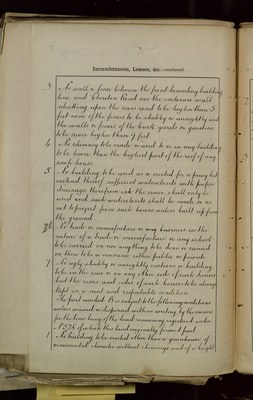 Incumbrances, Leases, &c.—continued.
3 No wall or fence between the front boundary building
line and Cheriton Road nor the enclosure wall
abutting upon the cross road to be higher than 5
feet none of the fences to be shabby or unsightly and
the walls or fences of the back yards or gardens
to be more higher than 7 feet
4 No chimney to be made or used to or in any building
to be lower than the highest part of the roof of any
such house
5 No building to be used as or erected for a privy but
instead thereof sufficient waterclosets with proper
drainage therefrom and the same shall only be
used and such waterclosets shall be made so as
not to project from such house unless built up from
the ground
6 No trade or manufacture or any business in the
nature of a trade or manufacture or any school
to be carried on nor any thing to be done or caused
on there to be a nuisance either public or private
7 No ugly shabby or unsightly erections or building
to be in the rear or on any other side of such houses
but the rears and sides of such houses to be always
kept in a neat and respectable condition
The part marked B is subject to the following conditions
unless waived or dispensed with in writing by the owners
for the time being of the land remaining registered under
No of which this land originally formed part
1 No building to be erected other than a greenhouse or
ornamental without chimneys and of a height